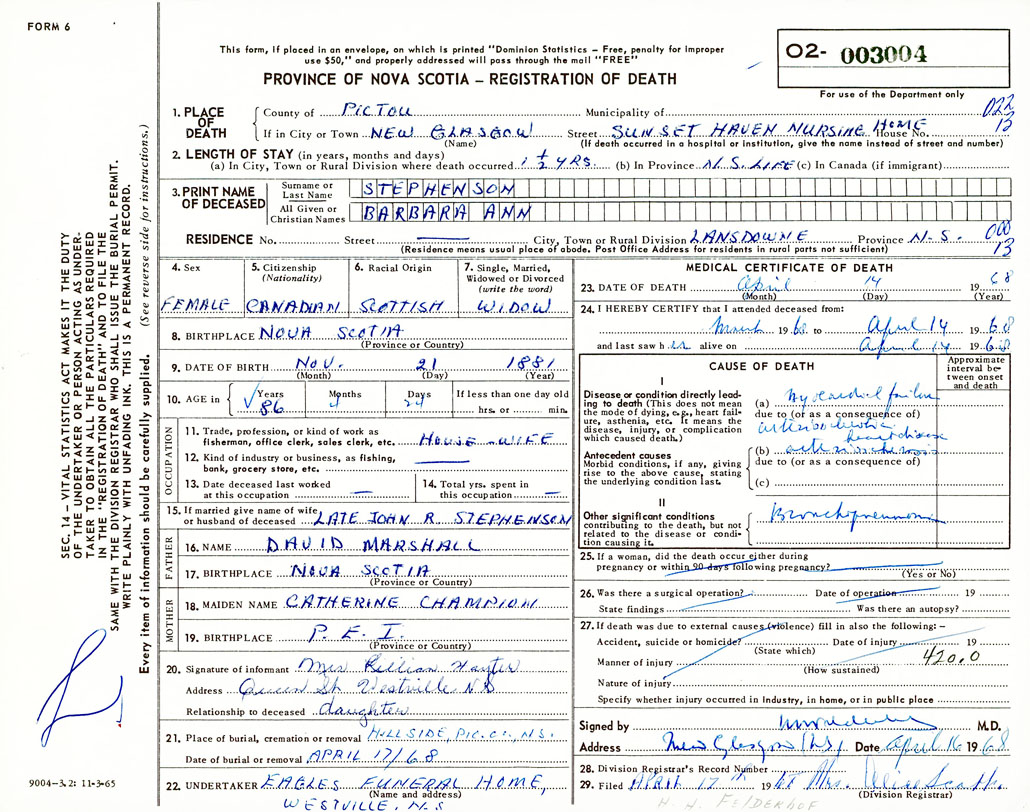 FORM 6
This form, if placed in an envelope, on which is printed "Dominion Statistics – Free, penalty for improper
use $50," and properly addressed will pass through the mail "FREE"
PROVINCE OF NOVA SCOTIA – REGISTRATION OF DEATH
O2- 003004
For use of the Department only
022
13
1. PLACE OF DEATH
County of PICTOU Municipality of
If in City or Town NEW GLASGOW Street SUNSET HAVEN NURSING HOME House No.
(Name) (If death occurred in a hospital or institution, give the name instead of street and number)
2. LENGTH OF STAY (in years, months and days)
(a) In City, Town or Rural Division where death occurred 1 1/2 YRS. (b) In Province N.S. LIFE (c) In Canada (if immigrant)
3. PRINT NAME OF DECEASED
Surname or Last Name STEPHENSON
All Given or Christian Names BARBARA ANN
RESIDENCE No. Street City, Town or Rural Division LANSDOWNE Province N.S.
000
13
(Residence means usual place of abode. Post Office Address for residents in rural parts not sufficient)
4. Sex
FEMALE
5. Citizenship
(Nationality)
CANADIAN
6. Racial Origin
SCOTTISH
7. Single, Married,
Widowed or Divorced
(write the word)
WIDOW
8. BIRTHPLACE NOVA SCOTIA
(Province or Country)
9. DATE OF BIRTH NOV. 21 1881
(Month) (Day) (Year)
10. AGE in Years Months Days If less than one day old
86 4 24 hrs. or min.
OCCUPATION
11. Trade, profession, or kind of work as
fisherman, office clerk, sales clerk, etc. HOUSE-WIFE
12. Kind of industry or business, as fishing,
bank, grocery store, etc.
13. Date deceased last worked
at this occupation
14. Total yrs. spent in
this occupation
15. If married give name of wife
or husband of deceased LATE JOHN R. STEPHENSON
FATHER
16. NAME DAVID MARSHALL
17. BIRTHPLACE NOVA SCOTIA
(Province or Country)
MOTHER
18. MAIDEN NAME CATHERINE CHAMPION
19. BIRTHPLACE P.E.I.
(Province or Country)
20. Signature of informant Mrs Lillian Hayter
Address Queen St. Westville N.S
Relationship to deceased daughter
21. Place of burial, cremation or removal HILLSIDE, PIC. CO., N.S.
Date of burial or removal APRIL 17/68
22. UNDERTAKER EAGLES FUNERAL HOME,
(Name and address)
WESTVILLE, N.S
MEDICAL CERTIFICATE OF DEATH
23. DATE OF DEATH April 14 1968
(Month) (Day) (Year)
24. I HEREBY CERTIFY that I attended deceased from
March 1968 to April 14 1968
and last saw her alive on April 14 1968
CAUSE OF DEATH
Approximate
interval be-
tween onset
and death
I
Disease or condition directly lead-
ing to death (This does not mean
the mode of dying, e.g., heart fail-
ure, asthenia, etc. It means the
disease, injury, or complication
which caused death.)
(a) Myocardial failure
due to (or as a consequence of)
arteriosclerotic
heart disease
Antecedent causes
Morbid conditions, if any, giving
rise to the above cause, stating
the underlying condition last.
(b) arteriosclerosis
due to (or as a consequence of)
(c)
II
Other significant conditions
contributing to the death, but not
related to the disease or condi-
tion causing it.
Bronchopneumonia
25. If a woman, did the death occur either during
pregnancy or within 90 days following pregnancy?
(Yes or No)
26. Was there a surgical operation? Date of operation 19
State findings Was there an autopsy?
27. If death was due to external causes (violence) fill in also the following: –
Accident, suicide or homicide? Date of injury 19
(State which)
Manner of injury 420.0
(How sustained)
Nature of injury
Specify whether injury occurred in Industry, in home, or in public place
Signed by M.D.
Address New Glasgow N.S. Date April 16 1968
28. Division Registrar's Record Number
29. Filed APRIL 17th 1968 Mrs. Alice Scott.
(Division Registrar)
H. H. FELDERHOF
SEC. 14 – VITAL STATISTICS ACT MAKES IT THE DUTY
OF THE UNDERTAKER OR PERSON ACTING AS UNDER-
TAKER TO OBTAIN ALL THE PARTICULARS REQUIRED
IN THE "REGISTRATION OF DEATH" AND TO FILE THE
SAME WITH THE DIVISION REGISTRAR WHO SHALL ISSUE THE BURIAL PERMIT.
WRITE PLAINLY WITH UNFADING INK. THIS IS A PERMANENT RECORD.
Every item of information should be carefully supplied. (See reverse side for instructions.)
9004-3.2: 11-3-65